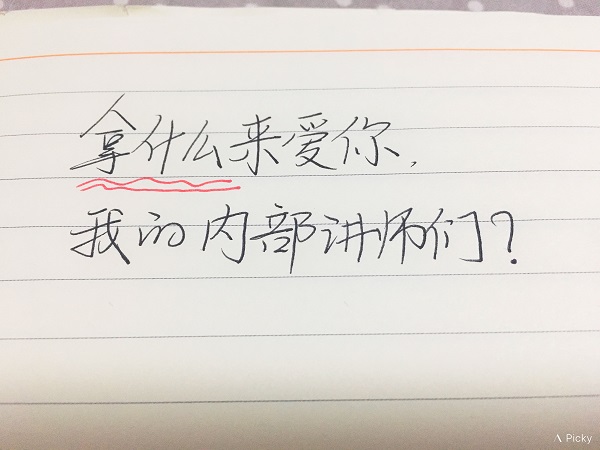 拿什么来爱你，
我的内部讲师们？
Λ Picky